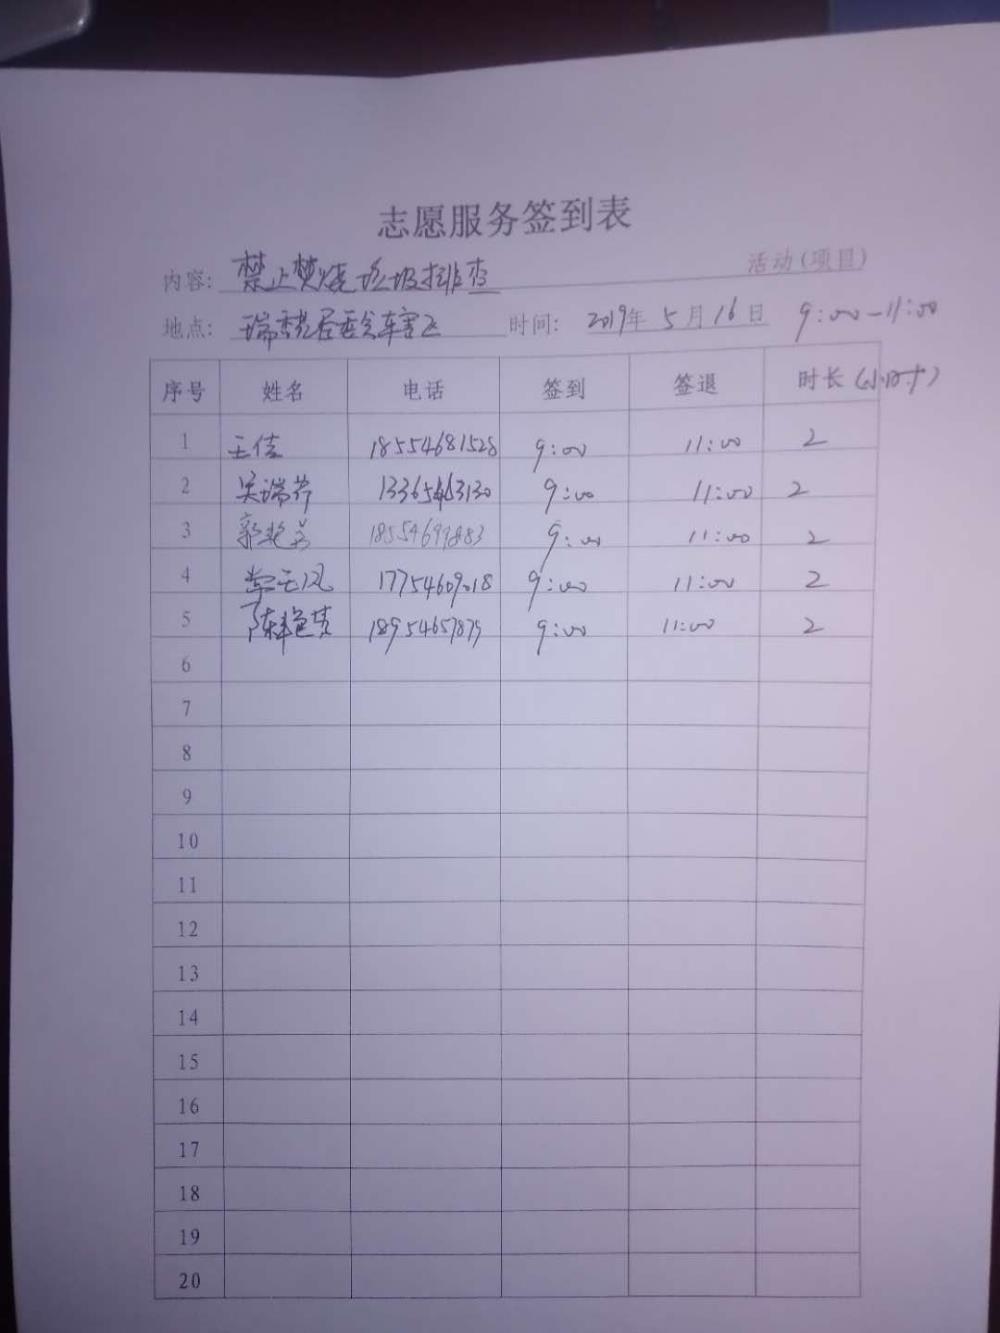 志愿服务签到表
内容: 禁止焚烧垃圾排查 活动(项目)
地点: 瑞香苑居委会辖区 时间: 2019年 5月 16日 9:00-11:00
序号 姓名 电话 签到 签退 时长(小时)
1 王佳 18554681528 9:00 11:00 2
2 吴瑞芹 9:00 11:00 2
3 18554699883 9:00 11:00 2
4 9:00 11:00 2
5 9:00 11:00 2
6
7
8
9
10
11
12
13
14
15
16
17
18
19
20